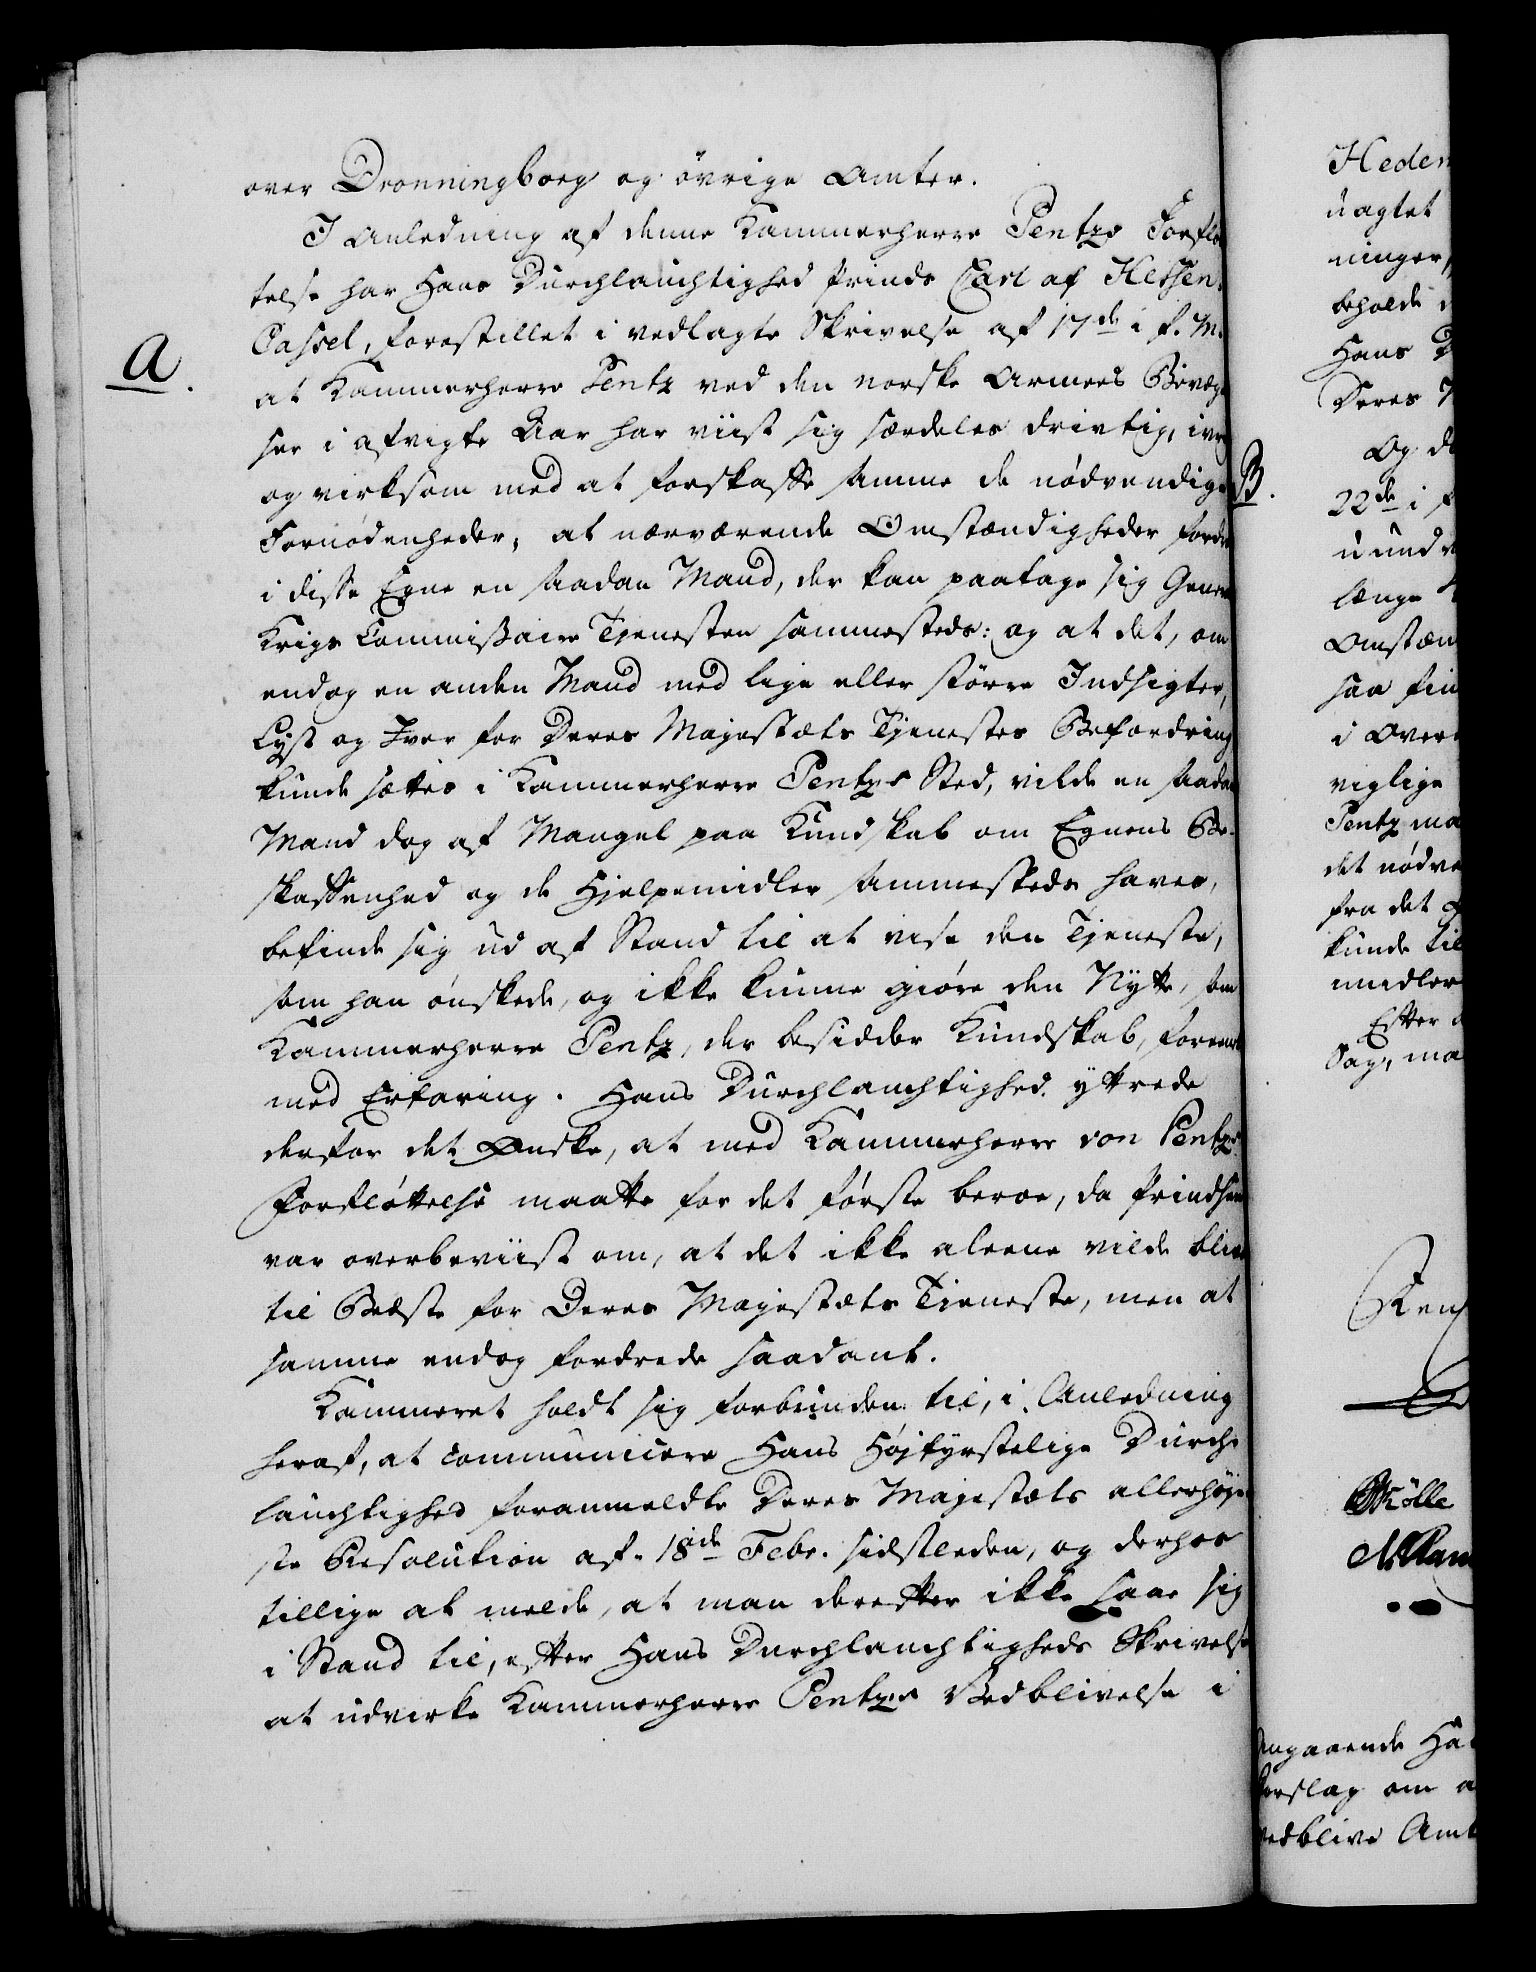 over Dronningborg og øvrige Amter.
I Anledning af denne Kammerherre Pentzs Forflø
telse har Hans Durchlauchtighed Prinds Carl af Hessen
Cassel, forestillet i vedlagte Skrivelse af 17de i f. M.
A.
at Kammerherre Pentz ved den norske Armees Bevægel
ser i afvigte Aar har viist sig særdeles drivtig, ivrig
og virksom med at forskaffe samme de nødvendige
Fornødenheder, at nærværende Omstændigheder fordre
i disse Egne en saadan Mand, der kan paatage sig General
Krigs Commissaire Tjenesten sammesteds: og at det, om
endog en anden Mand med lige eller større Indsigter,
Lyst og Iver for Deres Majestæts Tjenestes Befordring
kunde sættes i Kammerherre Pentzs Sted, vilde en saadan
Mand dog af Mangel paa Kundskab om Egnens Be-
skaffenhed og de Hjelpemidler sammesteds haves,
befinde sig ud af Stand til at vise den Tjeneste,
som han ønskede, og ikke kunne giøre den Nytte, som
Kammerherre Pentz, der besidder Kundskab, foreenet
med Erfaring. Hans Durchlauchtighed yttrede
derfor det Ønske, at med Kammerherre von Pentzs
Forfløttelse maatte for det første beroe, da Prindsen
var overbeviist om, at det ikke aleene vilde blive
til Beste for Deres Majestæts Tieneste, men at
samme endog fordrede saadant.
Kammeret holdt sig forbunden til, i Anledning
heraf, at communicere Hans Højfyrstelige Durch-
lauchtighed foranmeldte Deres Majestæts allerhøje
ste Resolution af 18de Febr. sidstleden, og derhos
tillige at melde, at man derefter ikke saae sig
i Stand til, efter Hans Durchlauchtigheds Skrivelse
at udvirke Kammerherre Pentzs Vedblivelse i
Heden
uagtet
ninger,
beholde
Hans
Deres
Og
B.
22de i
længe
Omstæn
saa
i Over
viglige
Pentz
det nødve
fra det
kunde til
midler
Efter
Sag, ma
Ren
Mølle
angaaende
Forslag om
vedblive Amt